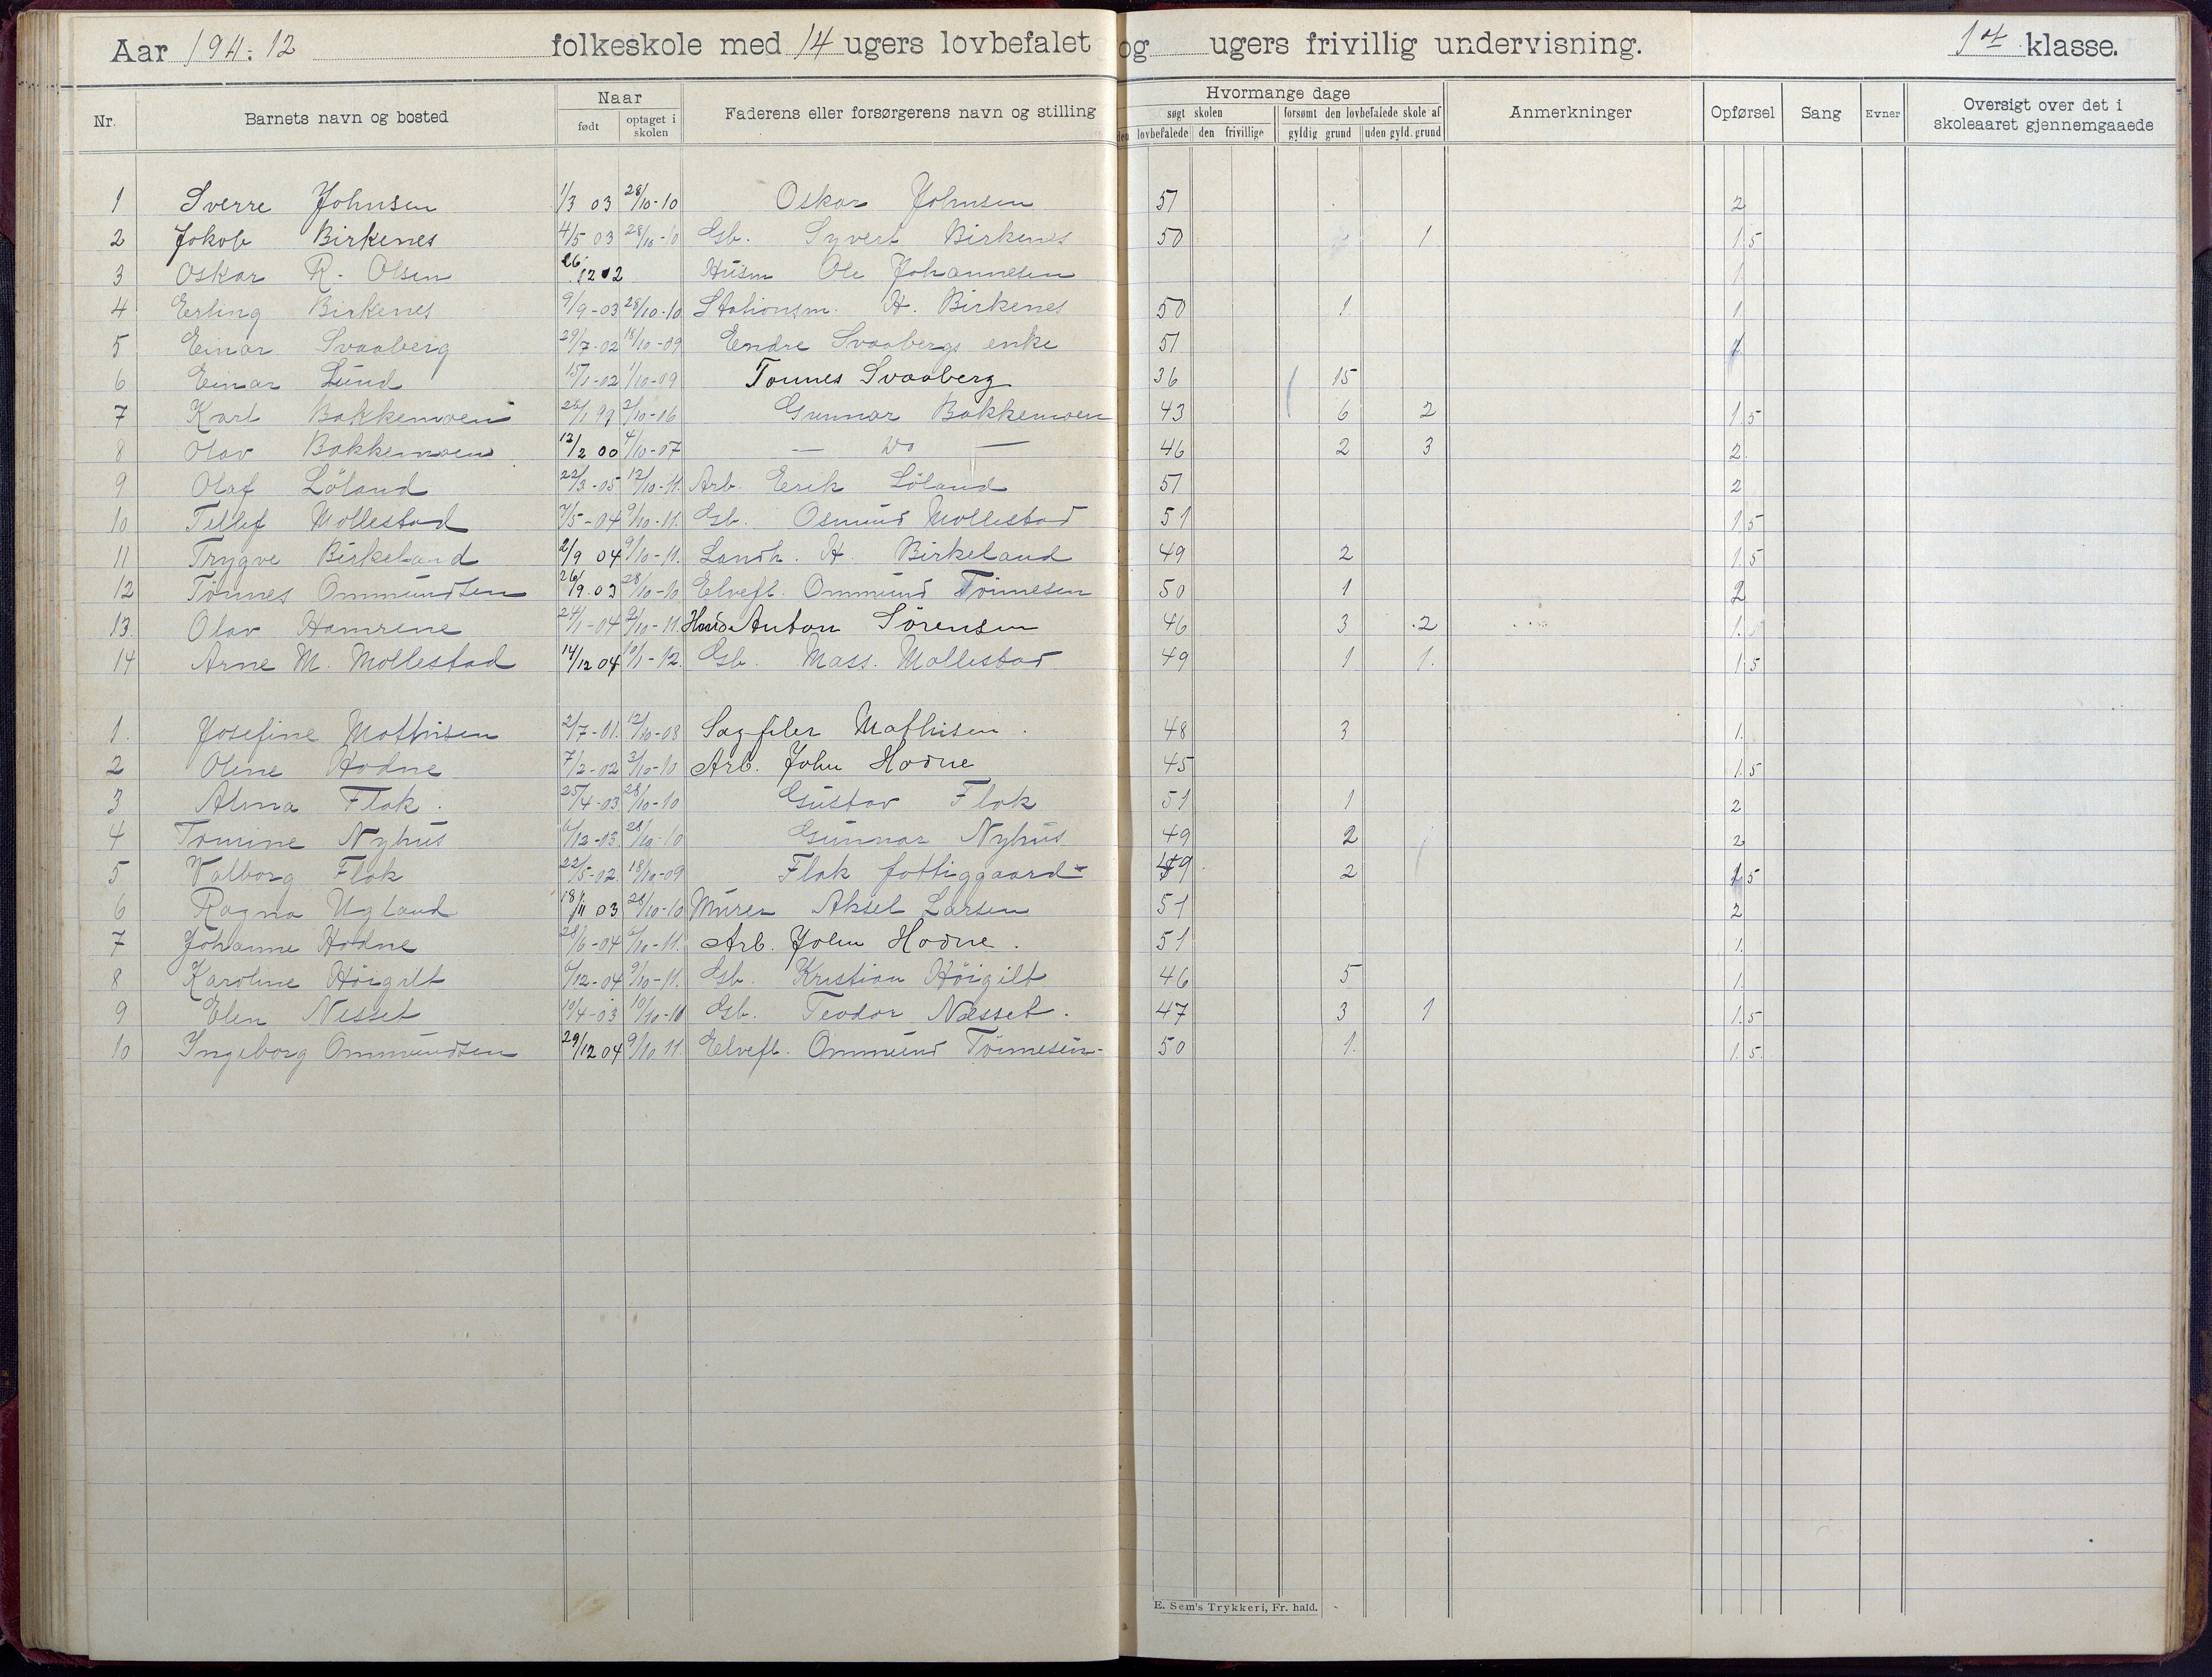 Aar 1911-12 folkeskole med 14 ugers lovbefalet og ugers frivillig undervisning. 1st klasse.
Nr. Barnets navn og bosted Naar født optaget i skolen Faderens eller forsørgerens navn og stilling Hvormange dage søgt skolen den lovbefalede den frivillige forsømt den lovbefalede skole af gyldig grund uden gyld. grund Anmerkninger Opførsel Sang Evner Oversigt over det i skoleaaret gjennemgaaede
1 Sverre Johnsen 1/3 03 28/10-10 Oskar Johnsen 51 2
2 Jakob Birkenes 4/5 03 28/10-10 Gb. Syvert Birkenes 50 1 1.5
3 Oskar R. Olsen 26/12 02 Husm Ole Johannesen 1
4 Erling Birkenes 9/9-03 28/10-10 Stationsm. H. Birkenes 50 1 1
5 Einar Svaaberg 29/7-02 18/10-09 Endre Svaabergs enke 51
6 Einar Lund 15/1-02 1/10-09 Tønnes Svaaberg 36 15
7 Karl Bakkemoen 28/1 99 2/10-16 Gunnar Bakkemoen 43 6 2 1.5
8 Olav Bakkemoen 12/2 00 4/10-07 — Do — 46 2 3 2.
9 Olaf Löland 22/3-05 12/10-11. Arb. Erik Löland 51 2
10 Tellef Mollestad 7/5-04 9/10-11. Gb. Osmund Mollestad 51 1.5
11 Trygve Birkeland 2/9 04 9/10-11. Landh. H. Birkeland 49 2 1.5
12 Tönnes Ommundsen 26/9.03 28/10-10 Elvefl. Ommund Tönnesen 50 1 2
13. Olav Hamrene 24/1-04 9/10-11. Hand. Anton Sörensen 46 3 2 1.
14 Arne M. Mollestad 14/12 04 10/1-12. Gb. Mass. Mollestad 49 1 1. 1.5
1. Josefine Mathisen 2/7-01. 12/10-08 Sagfiler Mathisen. 48 3 1.
2 Oline Hodne 7/2-02 3/10-10 Arb. John Hodne 45 1.5
3 Alma Flak. 25/4-03 28/10-10 Gustav Flak 51 1 2
4 Tomine Nyhus 6/12-03. 28/10-10 Gunnar Nyhus 49 2 2
5 Valborg Flak 22/5-02. 18/10-09 Flak fattiggaard 49 2 1.5
6 Ragna Ugland 18/11 03 28/10-10 Murer Aksel Larsen 51 2
7 Johanne Hodne 28/6-04 6/10-11. Arb. John Hodne. 51 1.
8 Karoline Höigilt 6/12-04 9/10-11. Gb. Kristian Höigilt 46 5 1.
9 Elen Nesset 10/4-03 10/10-10 Gb. Teodor Næsset. 47 3 1 1.5
10 Ingeborg Ommundsen 29/12 04 9/10 11. Elvefl. Ommund Tönnesen 50 1. 1.5.
E. Sem's Trykkeri, Fr. hald.